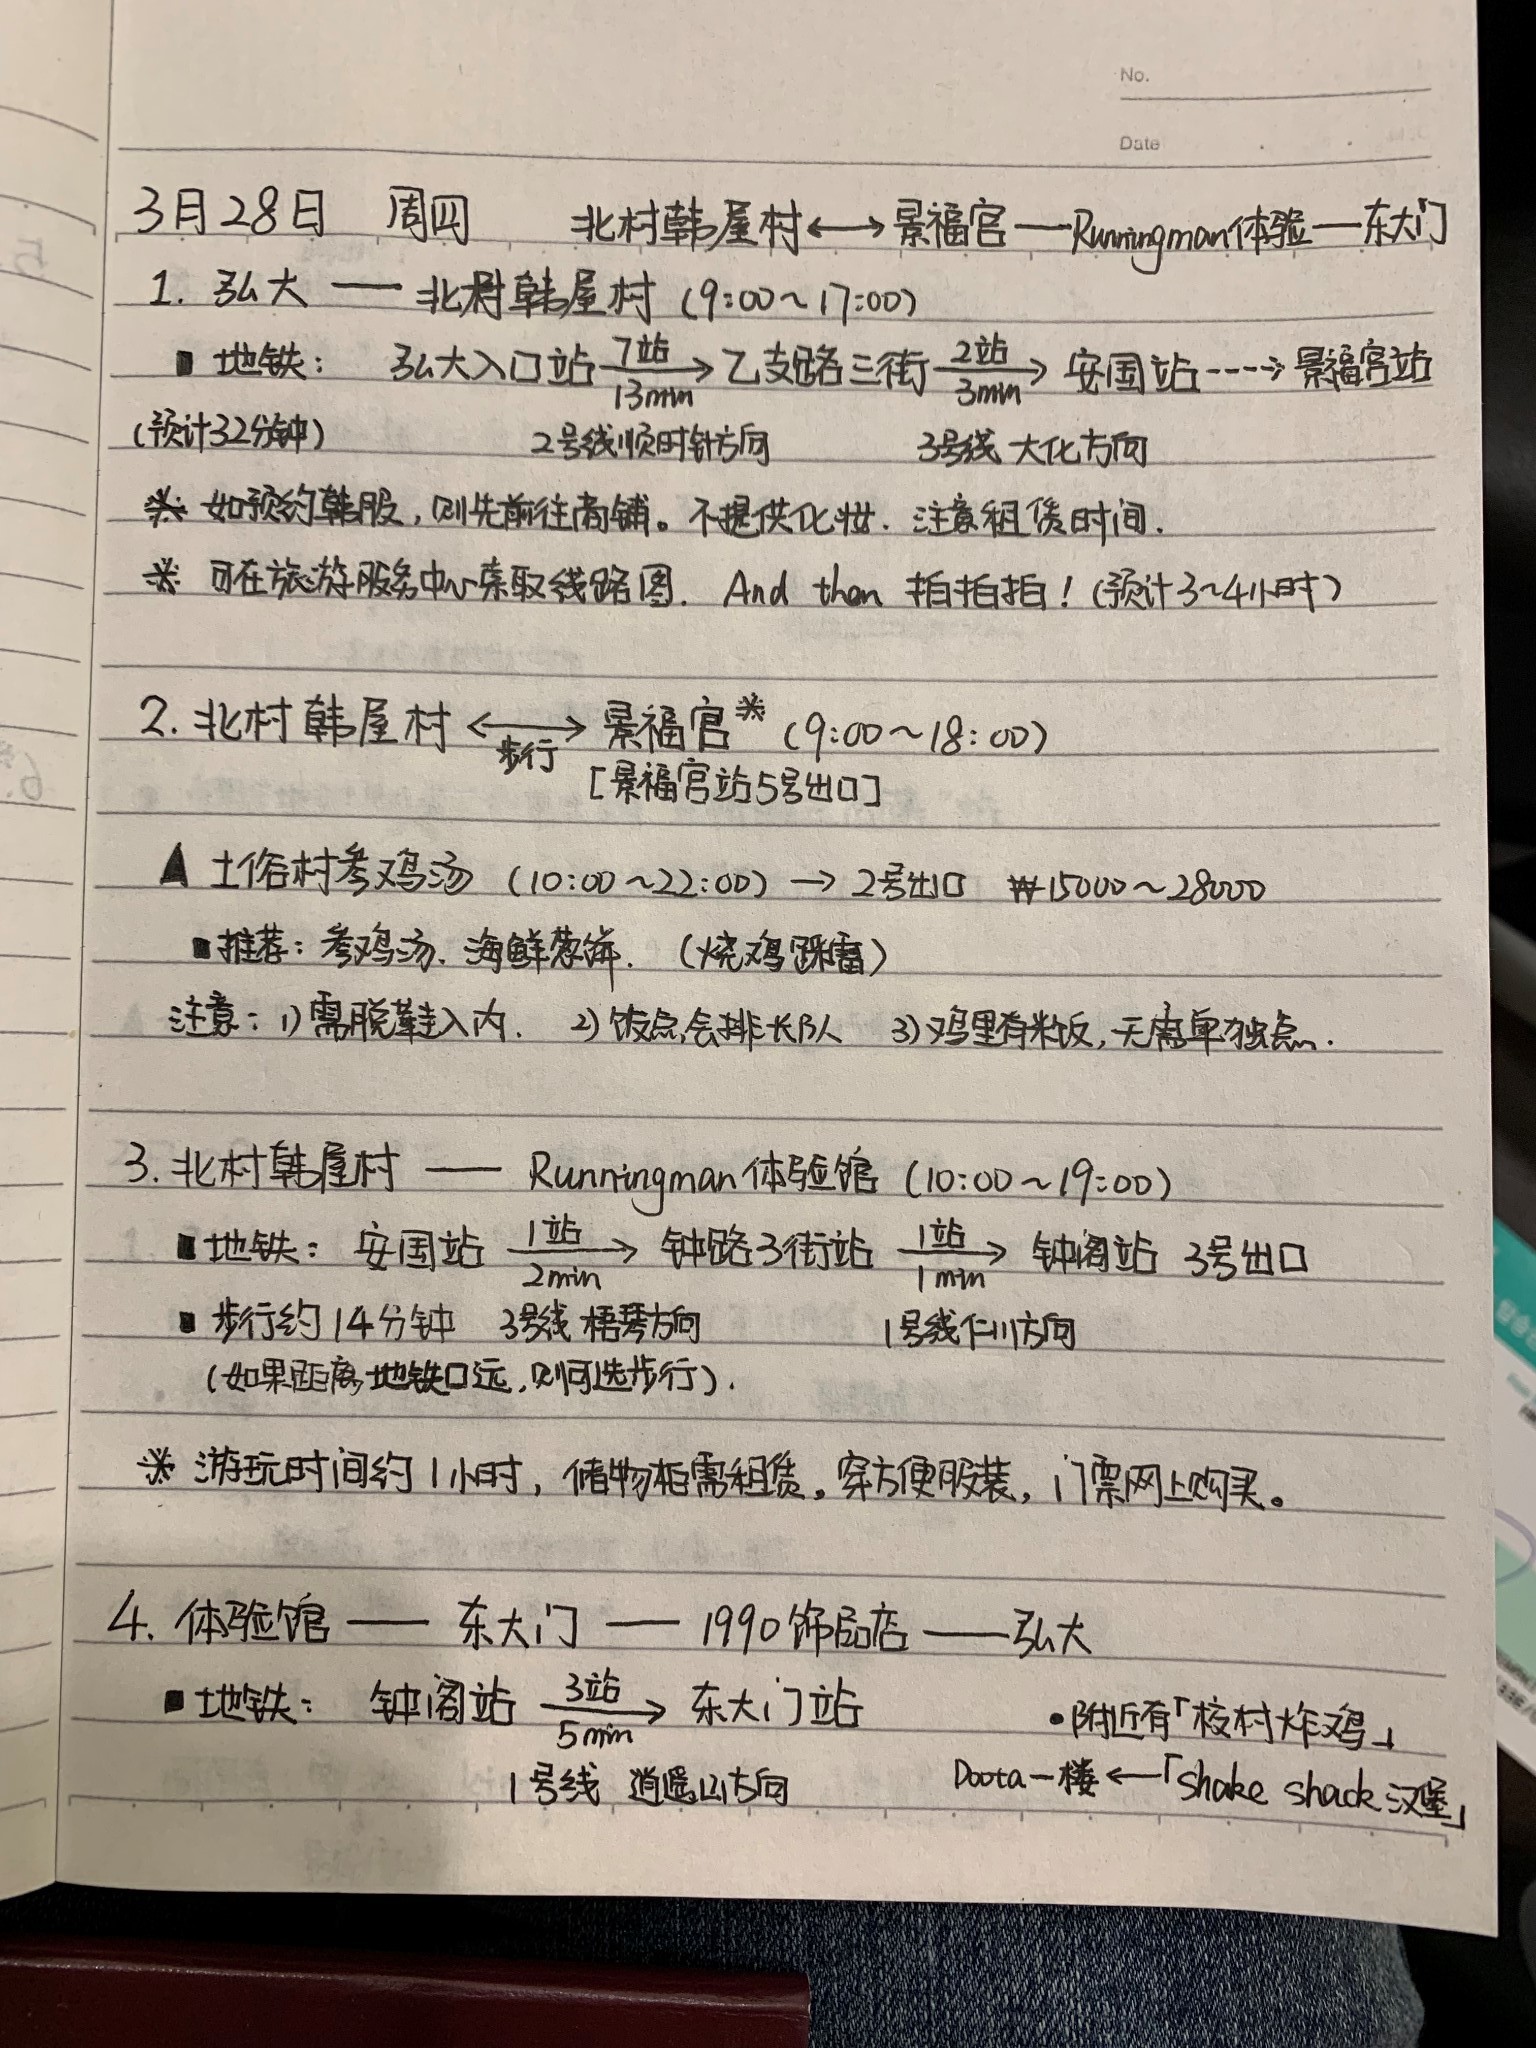 No.
Date
3月28日 周四 北村韩屋村⟷景福宫—Runningman体验—东大门
1. 弘大 — 北村韩屋村 (9:00~17:00)
■ 地铁: 弘大入口站 7站 13min → 乙支路三街 2站 3min → 安国站 ----> 景福宫站
(预计32分钟) 2号线顺时针方向 3号线 大化方向
※ 如预约韩服,则先前往商铺。不提供化妆. 注意租赁时间.
※ 可在旅游服务中心索取线路图. And then 拍拍拍! (预计3~4小时)
2. 北村韩屋村 ⟷ 步行 景福宫※ (9:00~18:00)
[景福宫站5号出口]
▲ 土俗村参鸡汤 (10:00~22:00) → 2号出口 ₩15000~28000
■推荐: 参鸡汤. 海鲜葱饼. (烧鸡踩雷)
注意: 1) 需脱鞋入内. 2) 饭点会排长队 3) 鸡里有米饭,无需单独点.
3. 北村韩屋村 — Runningman体验馆 (10:00~19:00)
■地铁: 安国站 1站 2min → 钟路3街站 1站 1min → 钟阁站 3号出口
■ 步行约14分钟 3号线 梧琴方向 1号线仁川方向
(如果距离地铁口远,则可选步行).
※ 游玩时间约1小时, 储物柜需租赁, 穿方便服装, 门票网上购买。
4. 体验馆 — 东大门 — 1990饰品店 — 弘大
■地铁: 钟阁站 3站 5min → 东大门站 •附近有「校村炸鸡」
1号线 逍遥山方向 Doota一楼 ←「shake shack 汉堡」